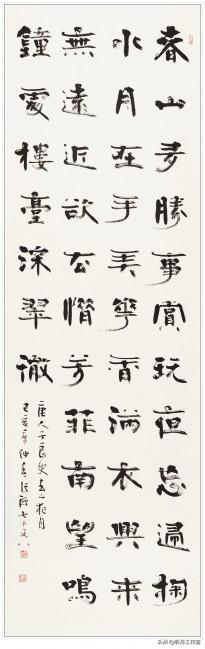 春山多勝事賞玩夜忘歸掬
水月在手弄華香滿衣興來
無遠近欲去惜芳菲南望鳴
鐘處樓臺深翠微
唐人于良史春山夜月
己亥年仲春